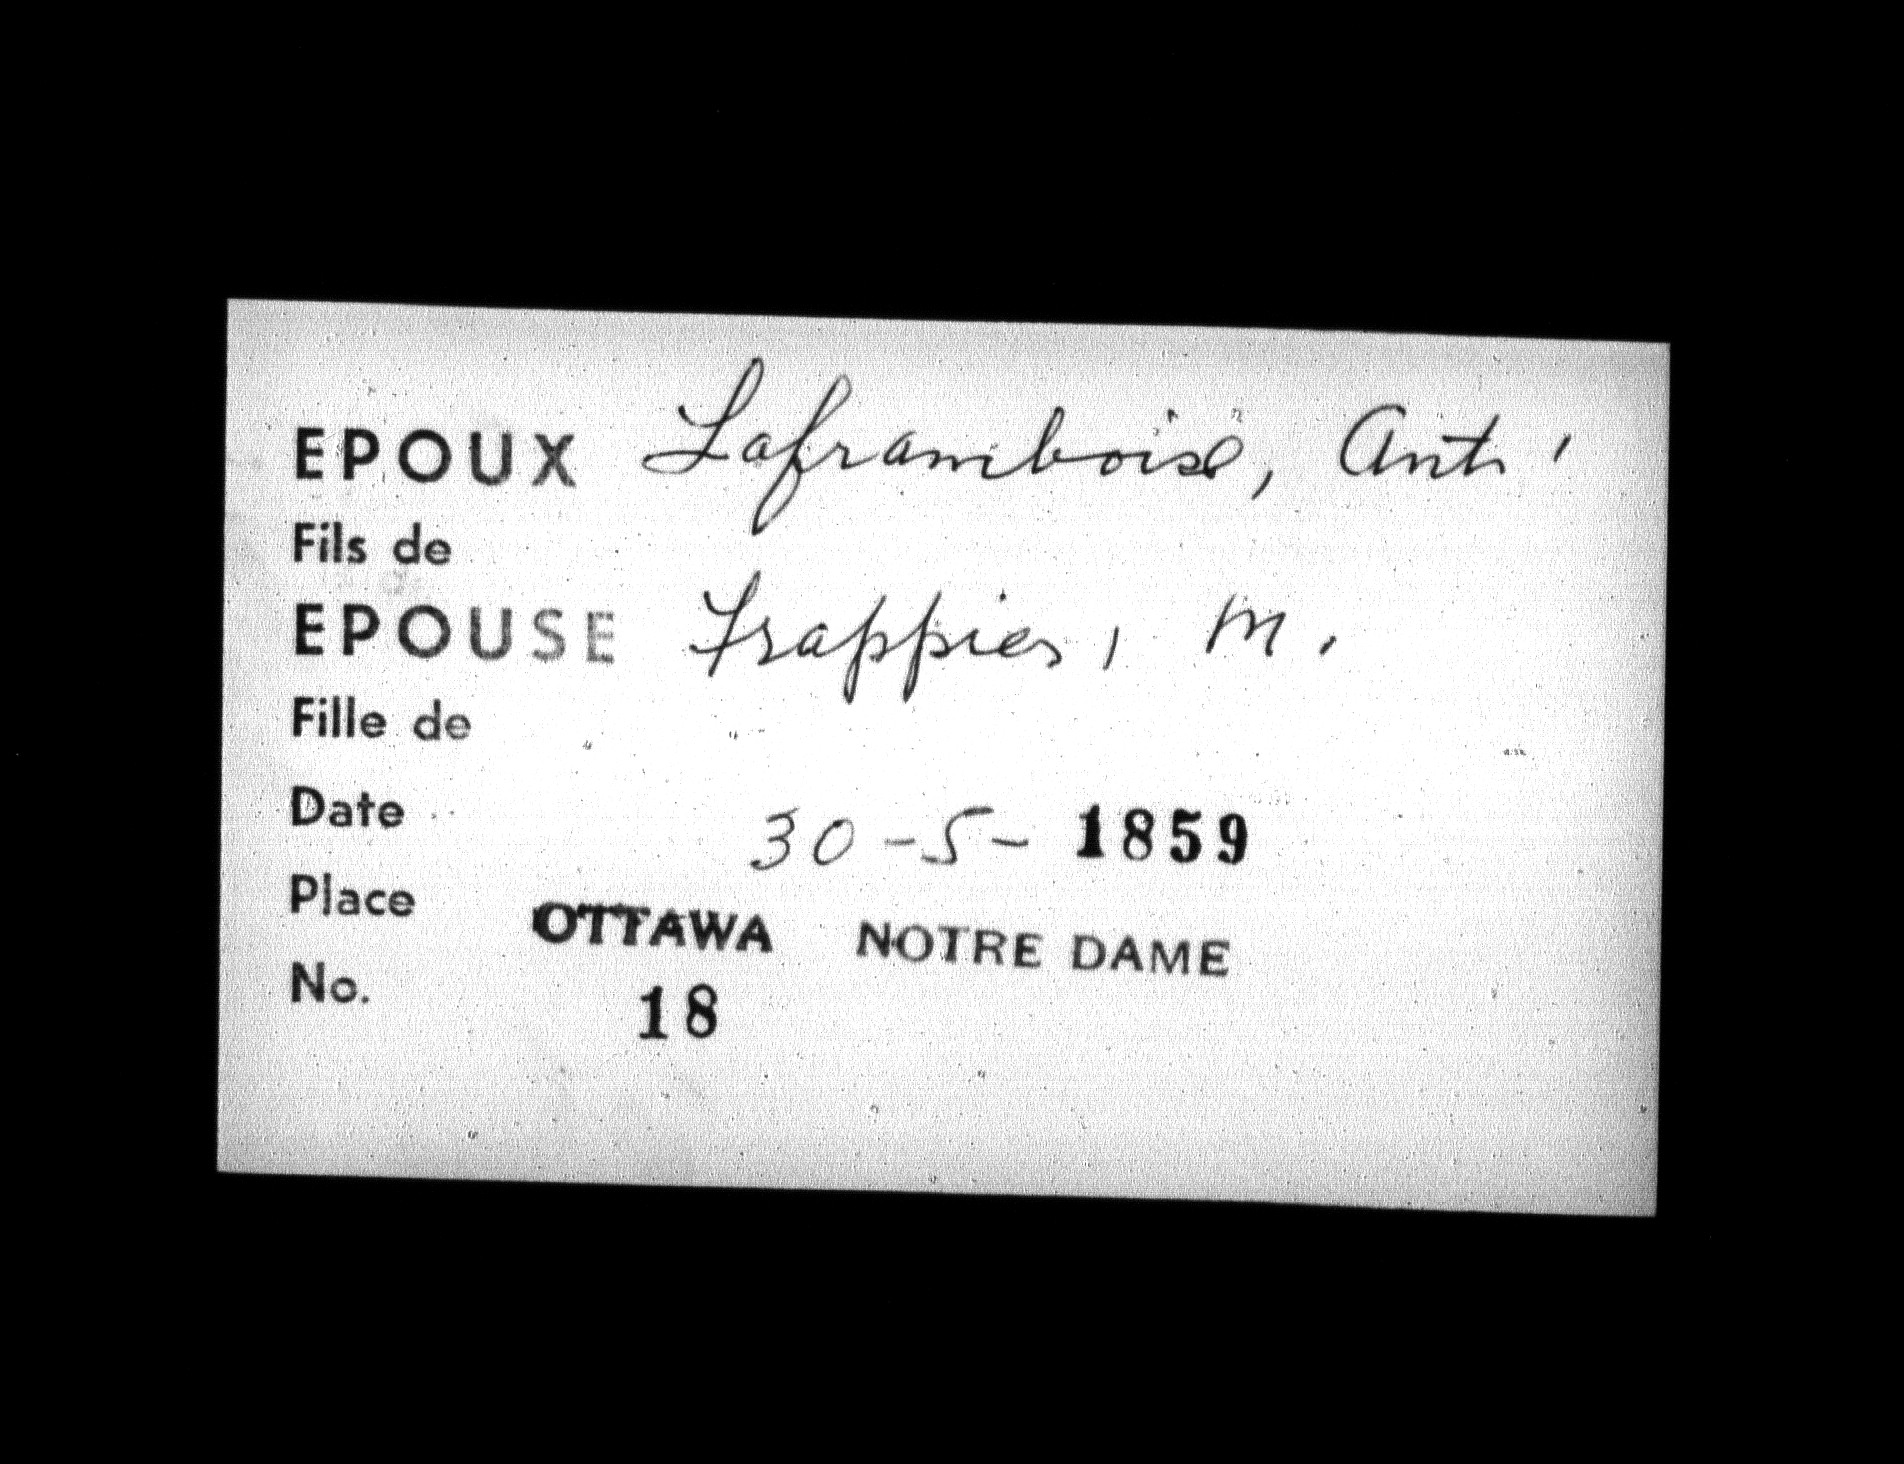 EPOUX Laframboise, Ant.
Fils de
EPOUSE Frappier, M.
Fille de
Date 30-5- 1859
Place OTTAWA NOTRE DAME
No. 18